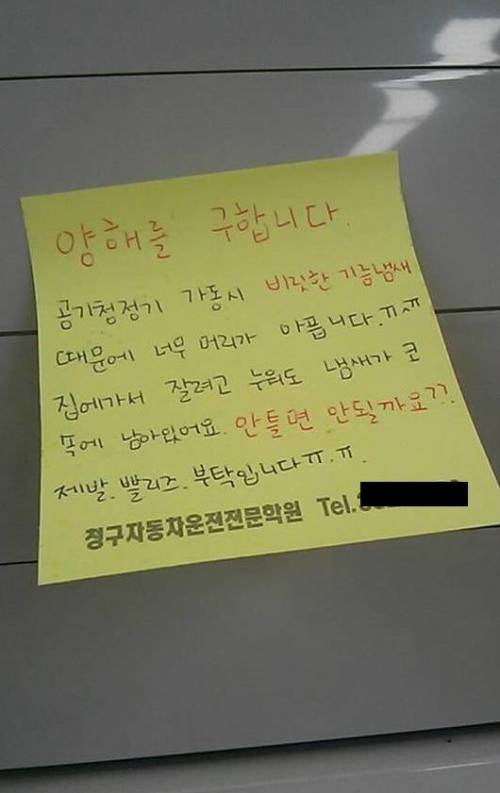 양해를 구합니다.
공기청정기 가동시 비릿한 기름냄새
때문에 너무 머리가 아픕니다.ㅠ.ㅠ
집에가서 잘려고 누워도 냄새가 코
폭에 남아있어요. 안틀면 안될까요??.
제발.쁠리즈.부탁입니다ㅠ.ㅠ.
청구자동차운전전문학원 Tel.